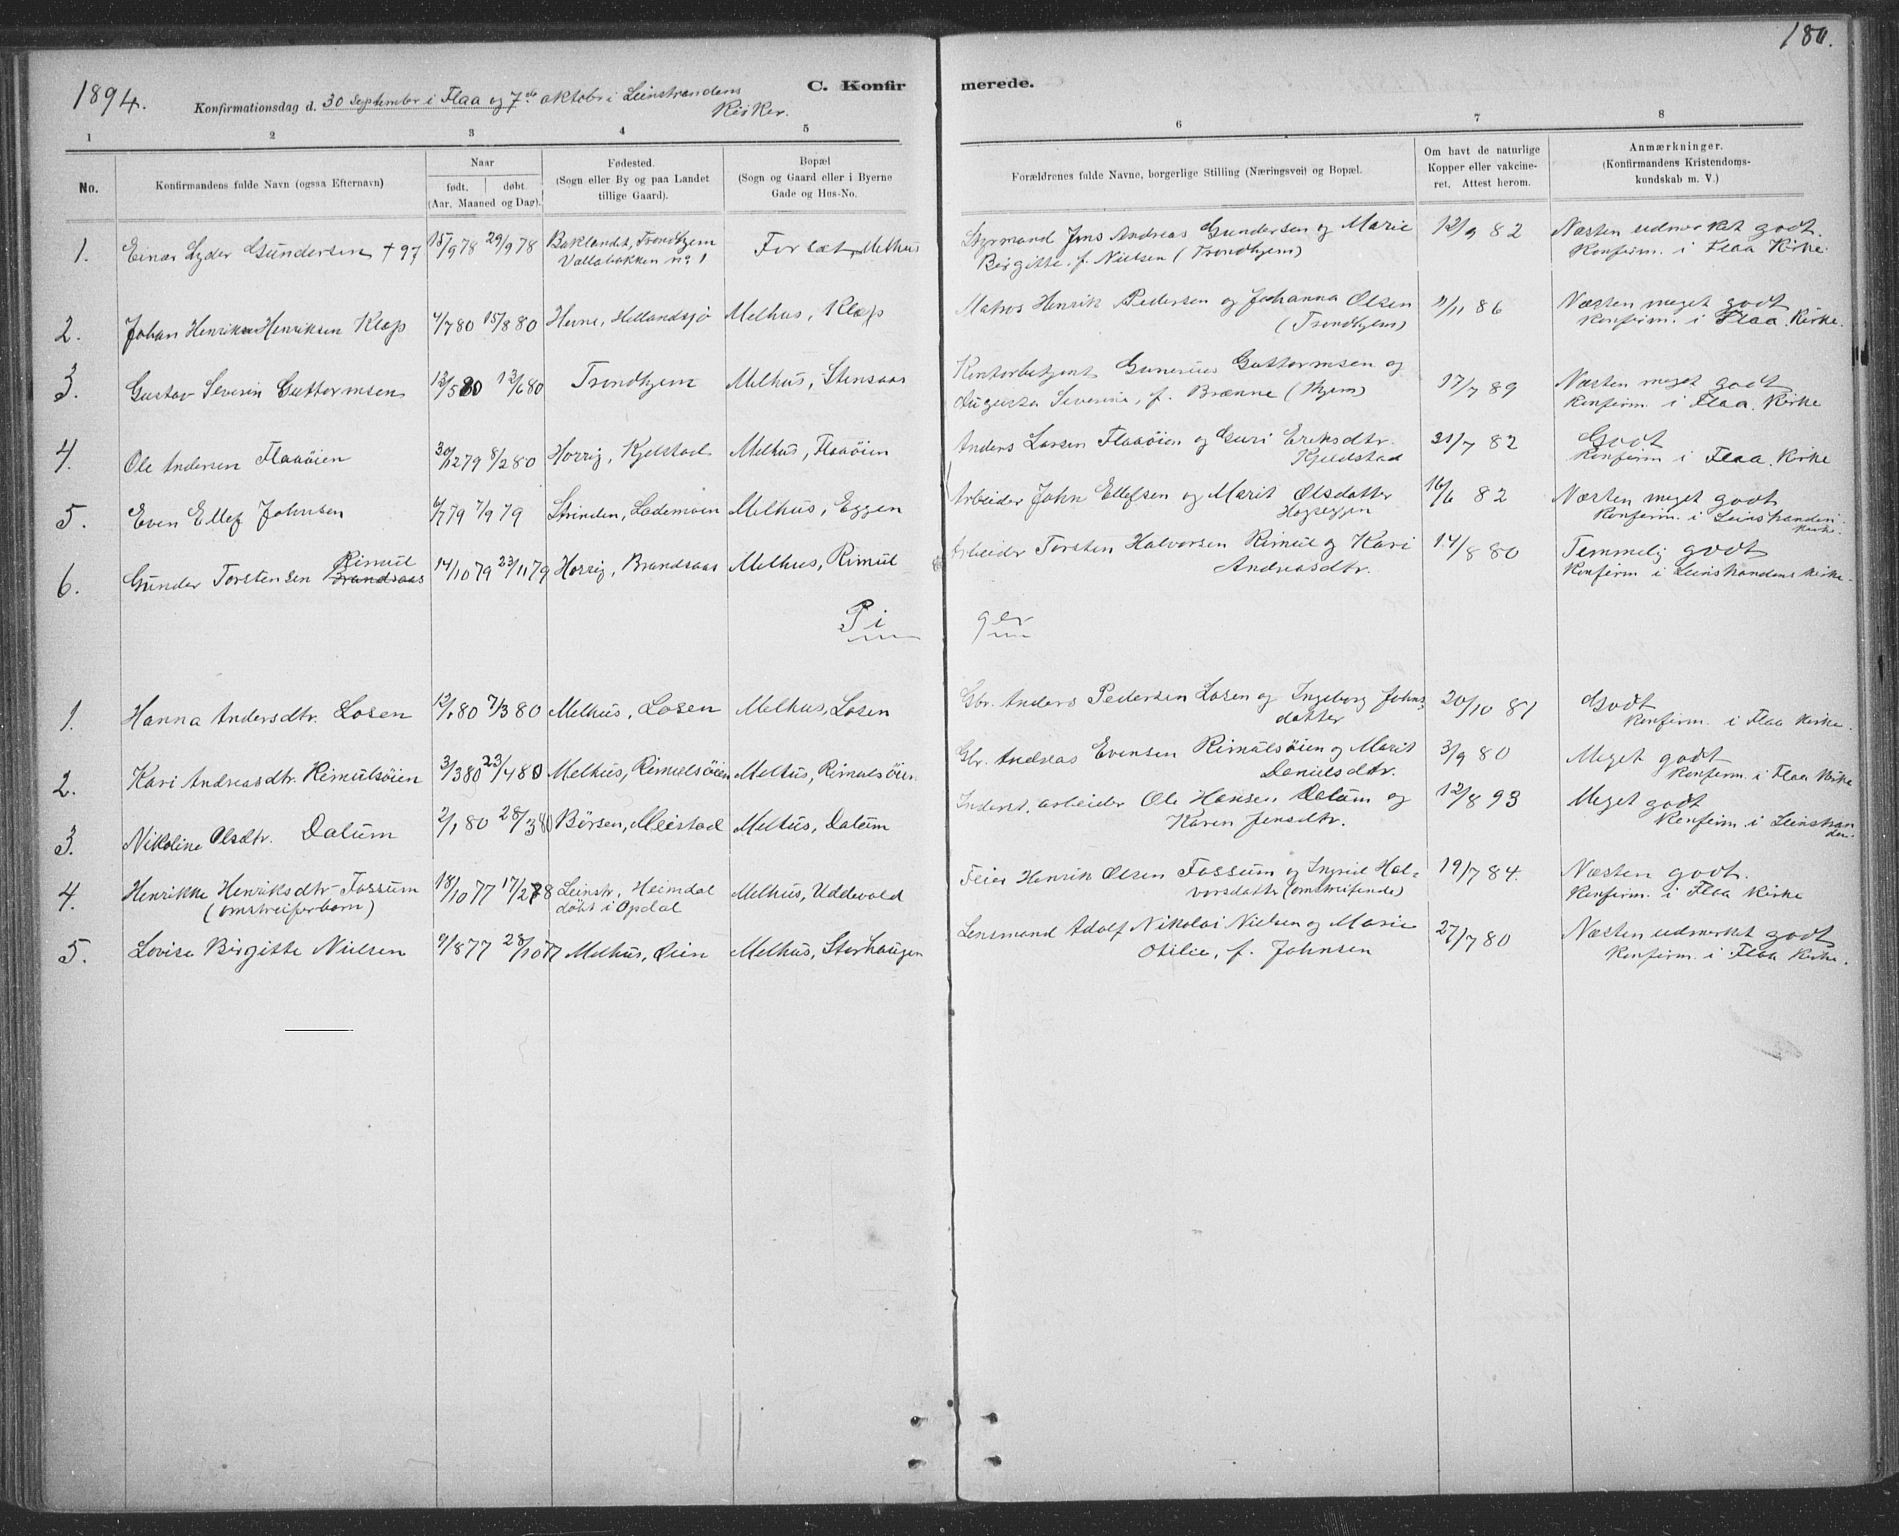 180.
1894.
C. Konfirmerede.
Konfirmationsdag d. 30 September i Flaa og 7de oktobr i Leinstrandens
Kirker.
1 2 3 4 5 6 7 8
No.
Konfirmandens fulde Navn (ogsaa Efternavn)
Naar
født. døbt.
(Aar, Maaned og Dag).
Fødested.
(Sogn eller By og paa Landet
tillige Gaard).
Bopæl
(Sogn og Gaard eller i Byerne
Gade og Hus-No.
Forældrenes fulde Navne, borgerlige Stilling (Næringsvei) og Bopæl.
Om havt de naturlige
Kopper eller vakcine-
ret. Attest herom.
Anmærkninger.
(Konfirmandens Kristendoms-
kundskab m. V.)
1. Einar Lyder Gundersen + 97 15/9 78 29/9 78 Baklandt, Trondhjem Melhus Styrmand Jens Andreas Gundersen og Marie 12/9 82 Næsten udmerket godt.
Vollabakken no 1 Birgitte, f. Nielsen (Trondhjem) Konfirm. i Flaa Kirke.
2. Johan Henriksen Klæp 4/7 80 15/8 80 Hevne, Hellandsjø Melhus, Klæp Matros Henrik Pedersen og Johanna Olsen 9/11 86 Næsten meget godt
(Trondhjem) Konfirm. i Flaa Kirke.
3. Gustav Severin Guttormsen 12/5 80 13/6 80 Trondhjem Melhus, Stensaas Kontorbetjent Gunerius Guttormsen og 17/7 89 Næsten meget godt
Augusta Severine, f. Brænne (Thjem) Konfirm. i Flaa. Kirke
4. Ole Andersen Flaaøien 30/12 79 8/2 80 Horrig, Kjelstad Melhus, Flaaøien Anders Larsen Flaaøien og Guri Eriksdtr. 31/7 82 Godt
Kjeldstad Konfirm i Flaa. Kirke
5. Even Ellef Johnsen 6/7 79 7/9 79 Strinden, Lademoen Melhus, Eggen Arbeider John Ellefsen og Marit Olsdatter 16/6 82 Næsten meget godt
Hogseggen Konfirm. i Leinstranden
Kirke.
Rimul
6. Gunder Torstensen Brandsaas 14/10 79 23/11 79 Horrig, Brandsaas Melhus, Rimul Arbeider Torsten Halvorsen Rimul og Kari 14/8 80 Temmelig godt
Andreasdtr. Konfirm i Leinstrandens kirke.
Piger
1. Hanna Andersdtr. Losen 12/1 80 7/3 80 Melhus, Losen Melhus, Losen Gbr. Anders Pedersen Losen og Ingeborg Johns- 20/10 81 Godt
datter Konfirm. i Flaa Kirke.
2. Kari Andreasdtr. Rimulsøien 3/3 80 23/4 80 Melhus, Rimulsøien Melhus, Rimulsøien Gbr. Andreas Evensen Rimulsøien og Marit 3/9 80 Meget godt
Danielsdtr. Konfirm. i Flaa Kirke
3. Nikoline Olsdtr. Dalum 2/1 80 28/3 80 Børsen, Meistad Melhus, Dalum Inderst, arbeider Ole Hansen Dalum og 12/8 93 Meget godt
Karen Jensdtr. Konfirm i Leinstran
den.
4. Henrikke Henriksdtr. Fossum 18/10 77 17/2 78 Leinstr, Heimdal Melhus, Uddevold Feier Henrik Olsen Fossum og Ingrid Hal- 19/7 84. Næsten godt.
(omstreiferbarn) døbt i Opdal vorsdatter (omstreifende) Konfirm. i Flaa Kirke
5. Lovise Birgitte Nielsen 9/8 77 28/10 77 Melhus, Øien Melhus, Storhaugen Lensmand Adolf Nikolai Nielsen og Marie 27/7 80 Næsten udmerket godt
Otilie, f. Johnsen Konfirm. i Flaa Kirke.